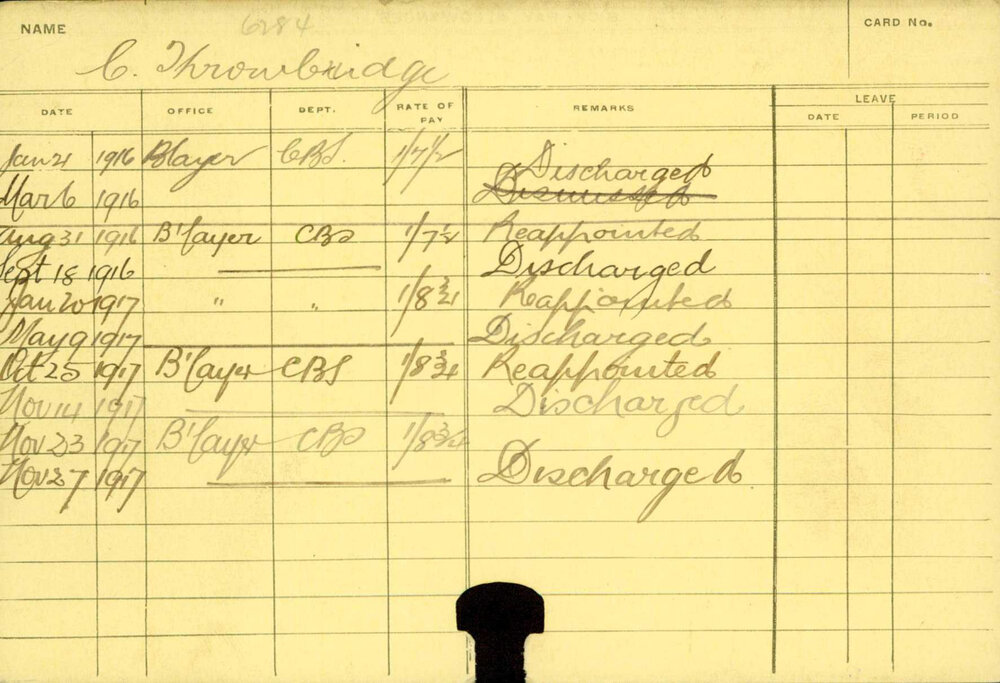 NAME 6284 CARD No.
C. Throwbridge
DATE OFFICE DEPT. RATE OF PAY REMARKS LEAVE
DATE PERIOD
Jan 21 1916 Blayer CBS. 1/7½ Discharged
Mar 6 1916 Dismissed
Aug 31 1916 B'layer CBS 1/7½ Reappointed
Sept 18 1916 Discharged
Jan 20 1917 " " 1/8¾ Reappointed
May 9 1917 Discharged
Oct 25 1917 B'layer CBS 1/8¾ Reappointed
Nov 14 1917 Discharged
Nov 23 1917 B'layer CBS 1/8¾
Nov 27 1917 Discharged